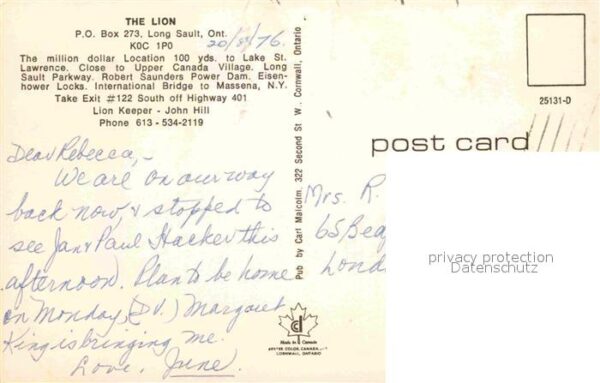 THE LION
P.O. Box 273, Long Sault, Ont.
K0C 1P0
20/8/76.
The million dollar Location 100 yds. to Lake St.
Lawrence. Close to Upper Canada Village. Long
Sault Parkway. Robert Saunders Power Dam. Eisen-
hower Locks. International Bridge to Massena, N.Y.
Take Exit #122 South off Highway 401
Lion Keeper - John Hill
Phone 613 - 534-2119
Dear Rebecca,-
We are on our way
back now, & stopped to
see Jan & Paul Hacker this
afternoon. Plan to be home
on Monday (D.V.) Margaret
King is bringing me.
Love, June.
Pub by Carl Malcolm, 322 Second St W., Cornwall, Ontario
Made in Canada
CORNWALL, ONTARIO
25131-D
post card
Mrs. R.
65 Bea
Lond
privacy protection
Datenschutz